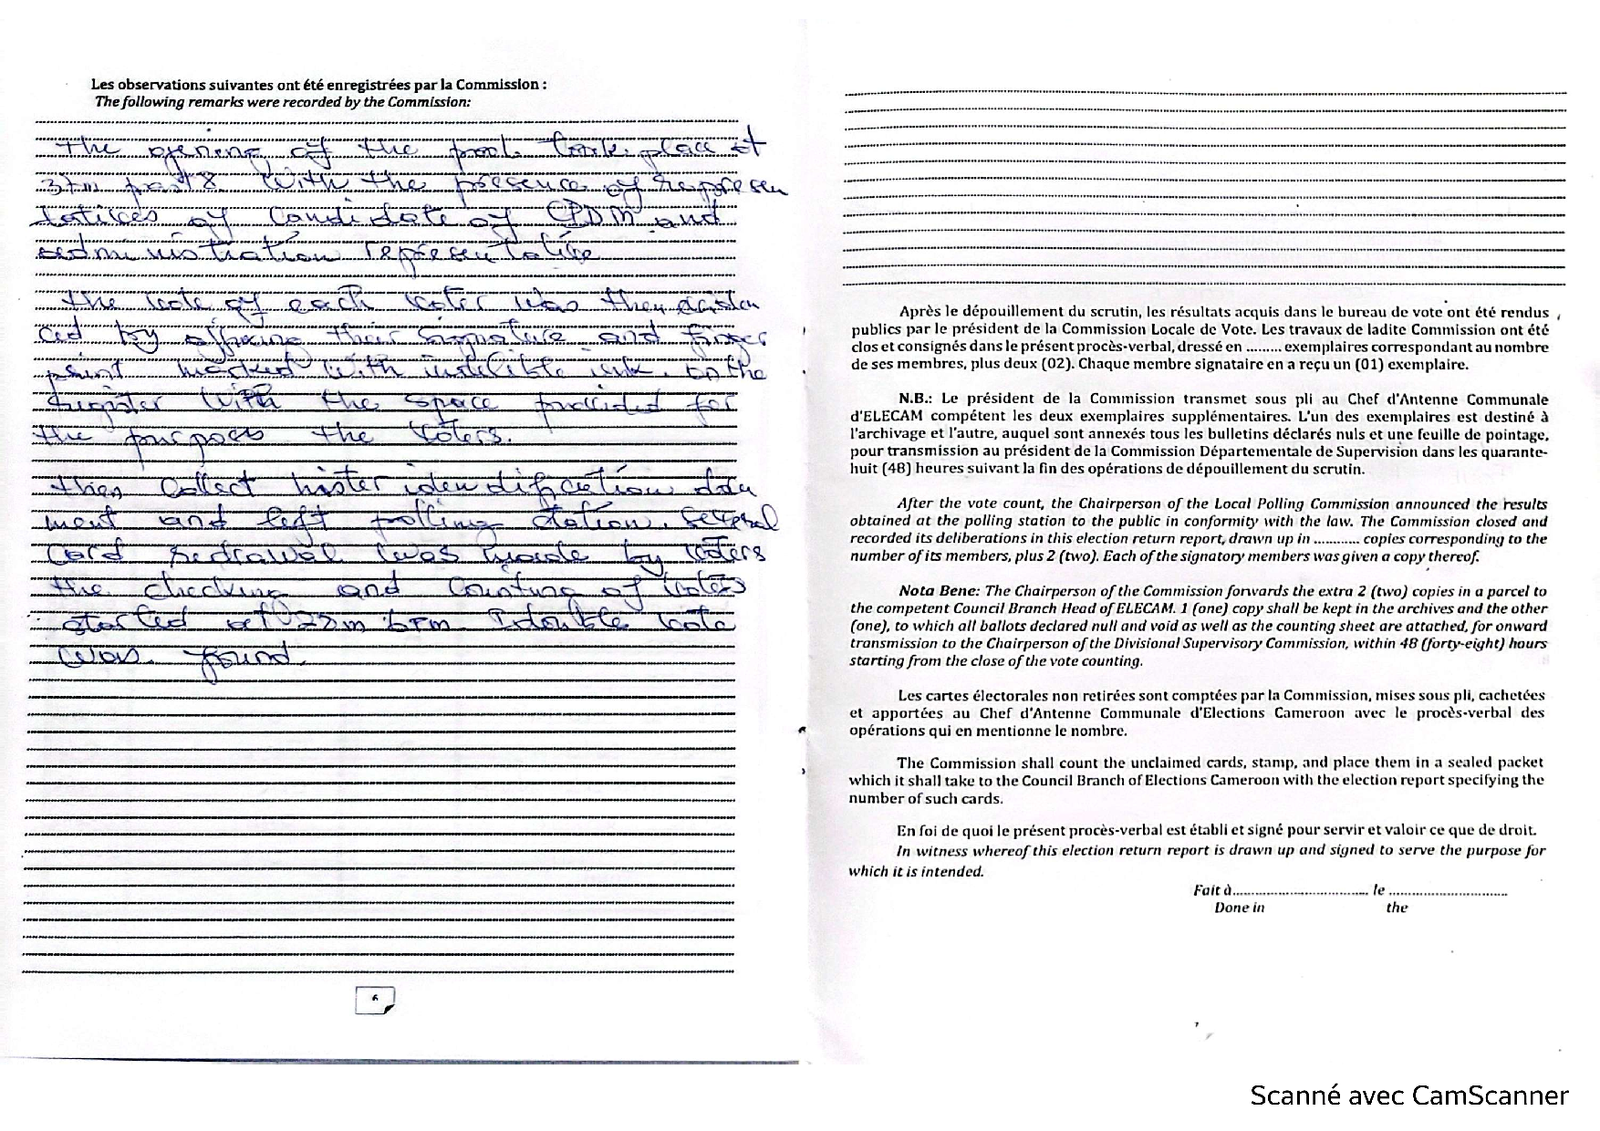 Les observations suivantes ont été enregistrées par la Commission :
The following remarks were recorded by the Commission:
The opening of the took place at
37m past 8 with the presence of represen
tatives of candidate of CPDM and
administration representative
The vote of each voter was then eviden
ced by affixing their signature and finger
print marked with indelible ink. on the
register with the space provided for
the purposes the voters.
then collect his/her identification docu
ment and left polling station. Several
card was made by voters
the checking and counting of votes
started at 22m 6Pm. 1 double vote
was found.
6
Après le dépouillement du scrutin, les résultats acquis dans le bureau de vote ont été rendus
publics par le président de la Commission Locale de Vote. Les travaux de ladite Commission ont été
clos et consignés dans le présent procès-verbal, dressé en ......... exemplaires correspondant au nombre
de ses membres, plus deux (02). Chaque membre signataire en a reçu un (01) exemplaire.
N.B.: Le président de la Commission transmet sous pli au Chef d'Antenne Communale
d'ELECAM compétent les deux exemplaires supplémentaires. L'un des exemplaires est destiné à
l'archivage et l'autre, auquel sont annexés tous les bulletins déclarés nuls et une feuille de pointage,
pour transmission au président de la Commission Départementale de Supervision dans les quarante-
huit (48) heures suivant la fin des opérations de dépouillement du scrutin.
After the vote count, the Chairperson of the Local Polling Commission announced the results
obtained at the polling station to the public in conformity with the law. The Commission closed and
recorded its deliberations in this election return report, drawn up in ............ copies corresponding to the
number of its members, plus 2 (two). Each of the signatory members was given a copy thereof.
Nota Bene: The Chairperson of the Commission forwards the extra 2 (two) copies in a parcel to
the competent Council Branch Head of ELECAM. 1 (one) copy shall be kept in the archives and the other
(one), to which all ballots declared null and void as well as the counting sheet are attached, for onward
transmission to the Chairperson of the Divisional Supervisory Commission, within 48 (forty-eight) hours
starting from the close of the vote counting.
Les cartes électorales non retirées sont comptées par la Commission, mises sous pli, cachetées
et apportées au Chef d'Antenne Communale d'Elections Cameroon avec le procès-verbal des
opérations qui en mentionne le nombre.
The Commission shall count the unclaimed cards, stamp, and place them in a sealed packet
which it shall take to the Council Branch of Elections Cameroon with the election report specifying the
number of such cards.
En foi de quoi le présent procès-verbal est établi et signé pour servir et valoir ce que de droit.
In witness whereof this election return report is drawn up and signed to serve the purpose for
which it is intended.
Fait à.................................... le ...............................
Done in the
Scanné avec CamScanner